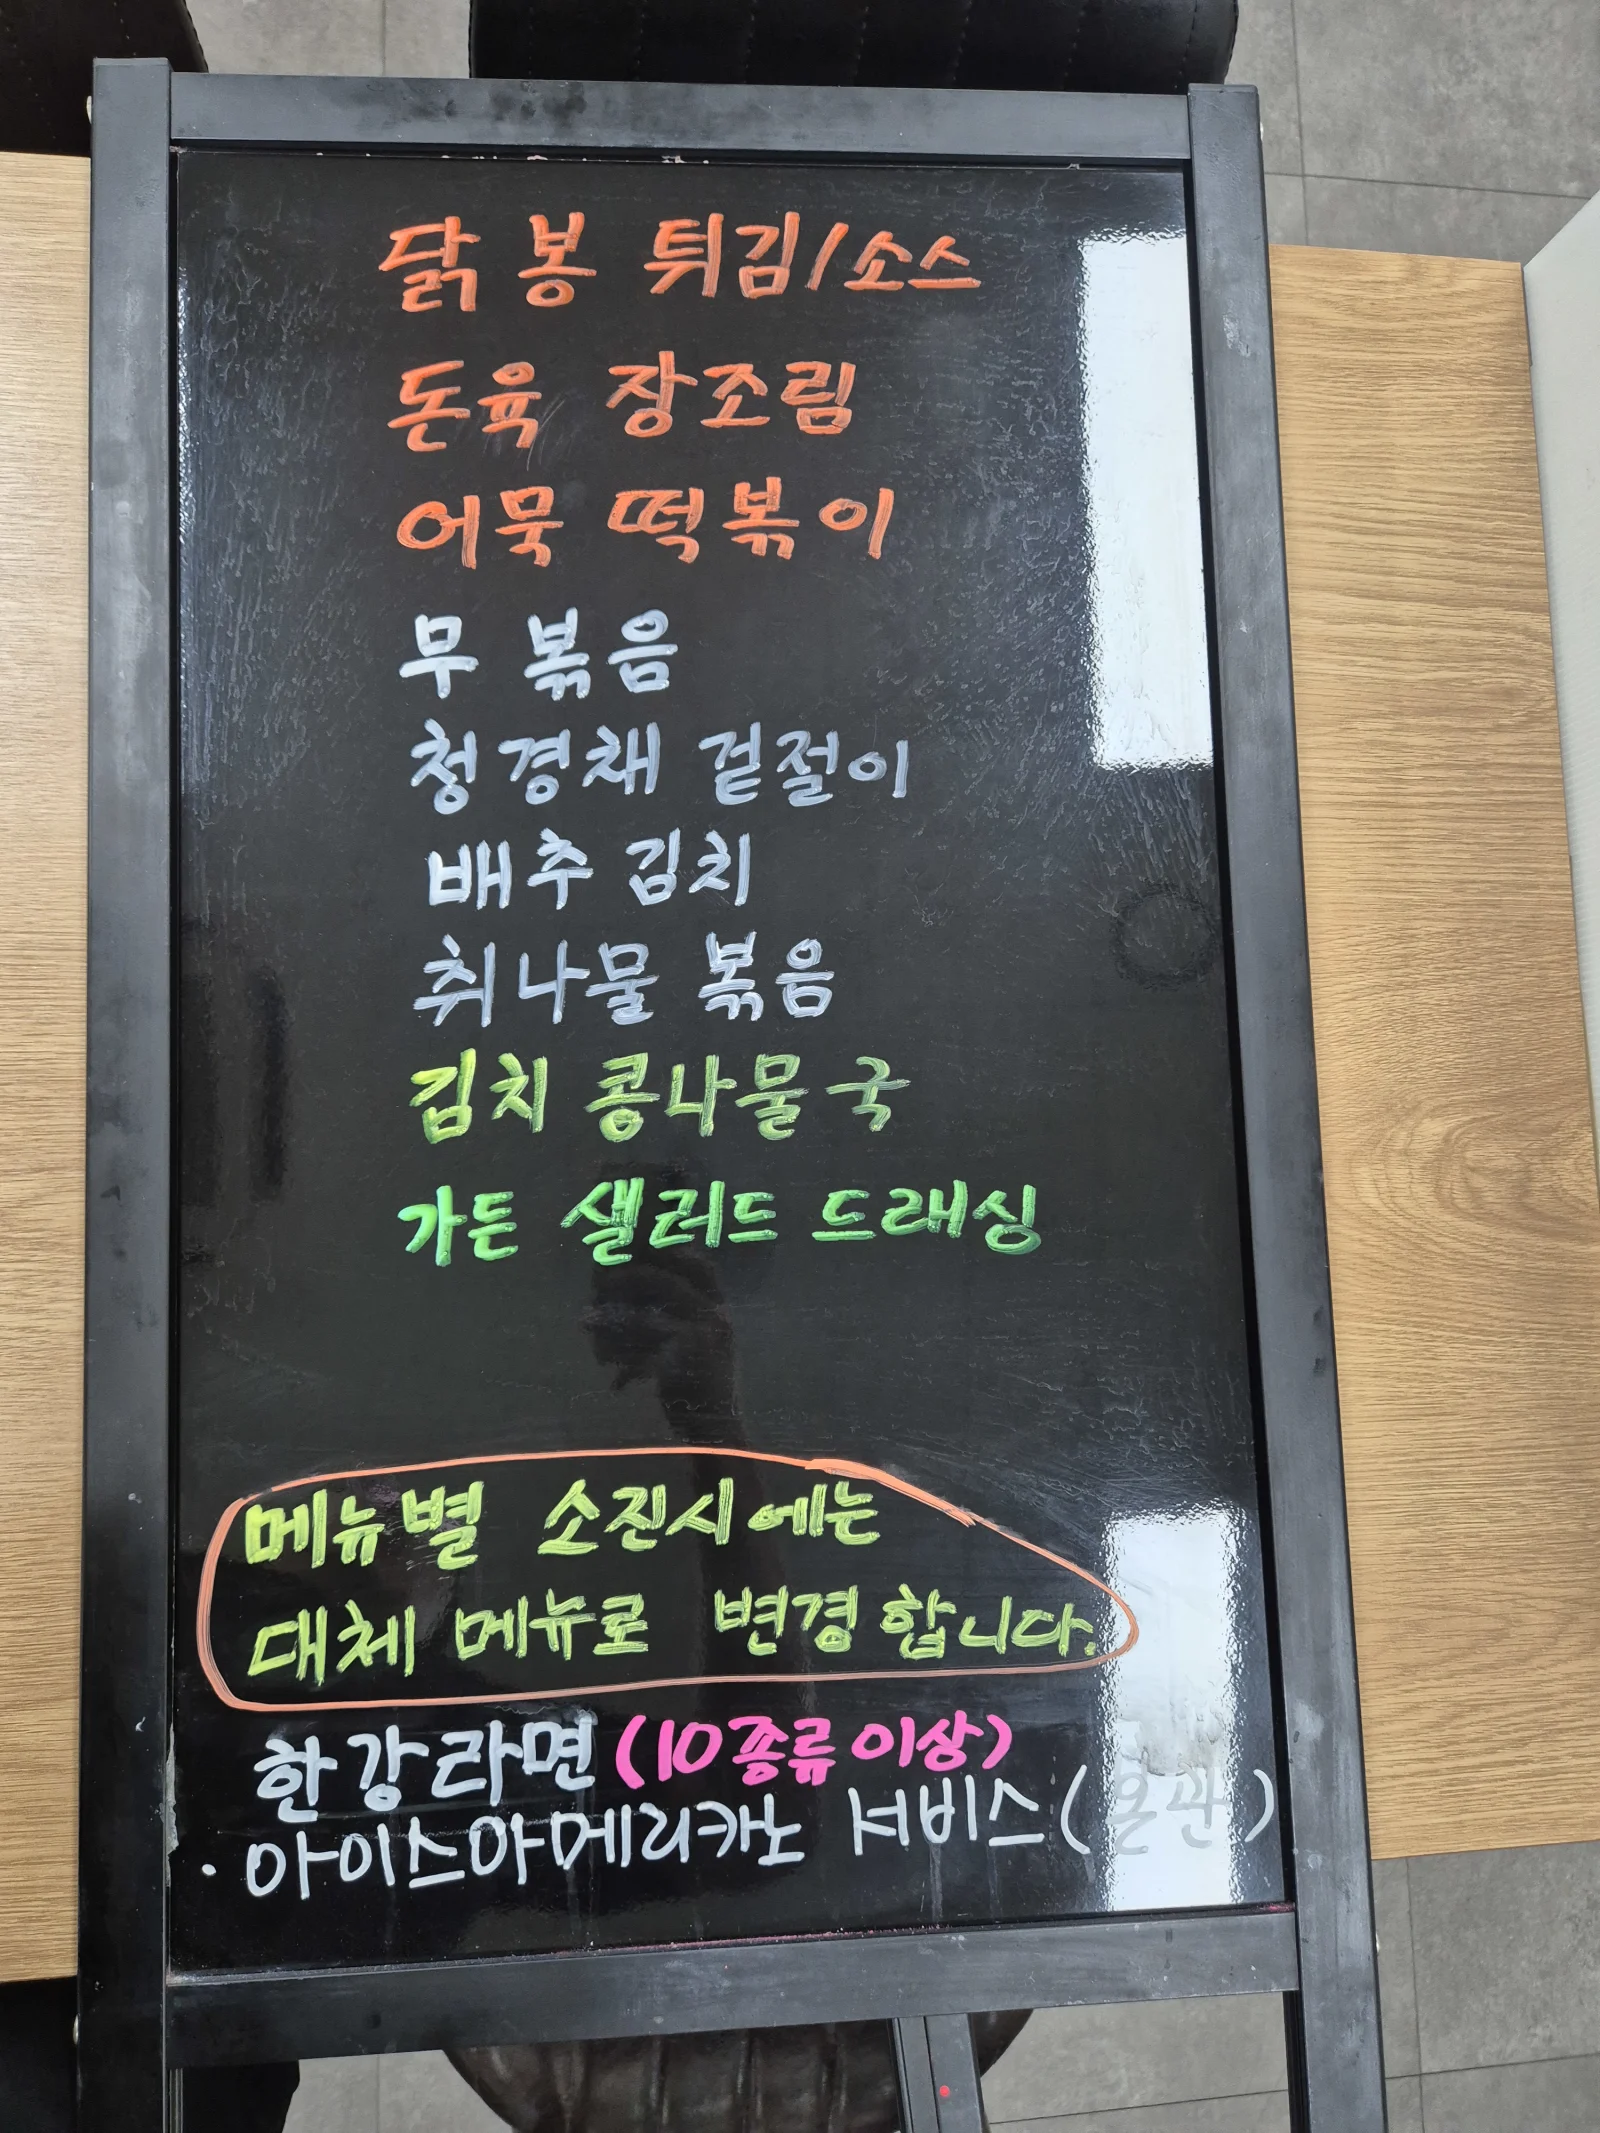 닭봉 튀김/소스
돈육 장조림
어묵 떡볶이
무 볶음
청경채 겉절이
배추 김치
취나물 볶음
김치 콩나물국
가든 샐러드 드래싱
메뉴별 소진시에는
대체 메뉴로 변경 합니다.
한강라면 (10종류이상)
· 아이스아메리카노 서비스